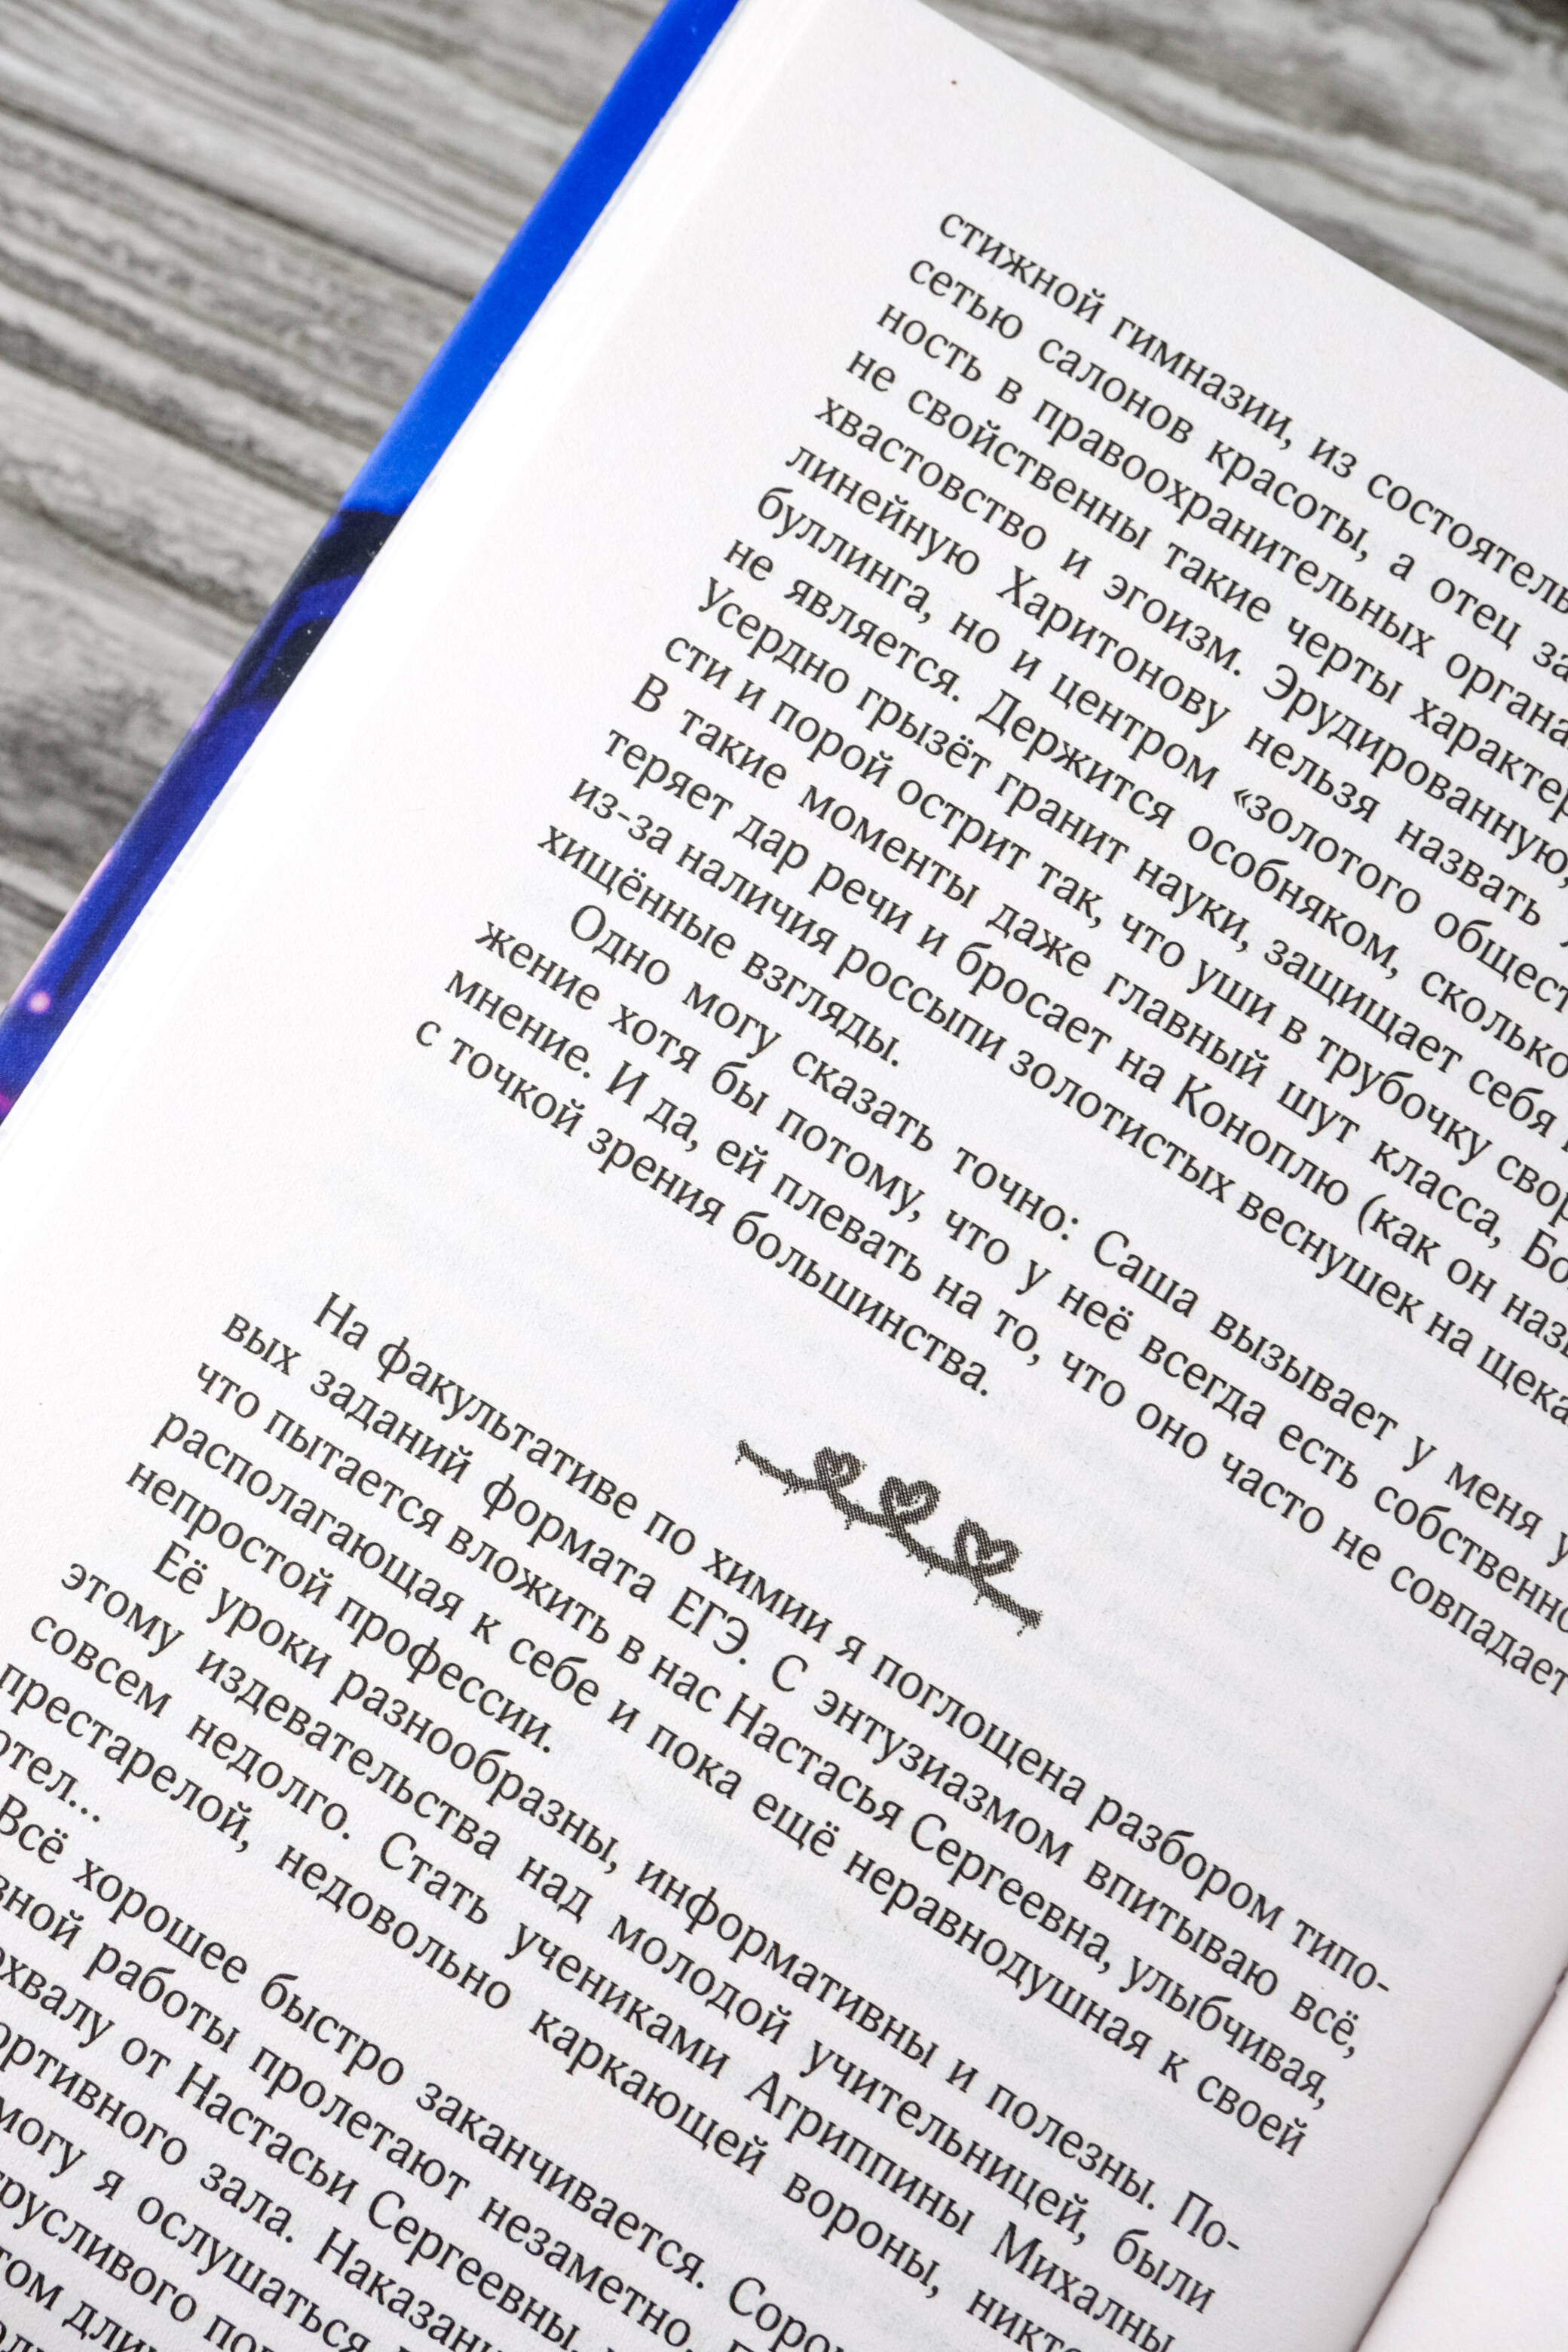 стижной гимназии, из
сетью салонов красоты, а отец
ность в правоохранительных
не свойственны такие черты
хвастовство и эгоизм. Эрудированную,
линейную Харитонову нельзя назвать
буллинга, но и центром «золотого
не является. Держится особняком, сколько
Усердно грызёт гранит науки, защищает себя
сти и порой острит так, что уши в трубочку
В такие моменты даже главный шут класса,
теряет дар речи и бросает на Коноплю (как он
из-за наличия россыпи золотистых веснушек на
хищённые взгляды.
Одно могу сказать точно: Саша вызывает у меня
жение хотя бы потому, что у неё всегда есть
мнение. И да, ей плевать на то, что оно часто не совпадает
с точкой зрения большинства.
На факультативе по химии я поглощена разбором типо-
вых заданий формата ЕГЭ. С энтузиазмом впитываю всё,
что пытается вложить в нас Настасья Сергеевна, улыбчивая,
располагающая к себе и пока ещё неравнодушная к своей
непростой профессии.
Её уроки разнообразны, информативны и полезны. По-
этому издевательства над молодой учительницей, были
совсем недолго. Стать учениками Агриппины Михалны
престарелой, недовольно каркающей вороны,
Всё хорошее быстро заканчивается.
работы пролетают незаметно.
от Настасьи Сергеевны,
зала.
я ослушаться